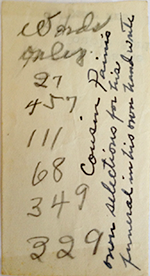 Words
only
27
457
111
68
349
329
Cousin Fannie's
own selections for his
funeral in his own hand write